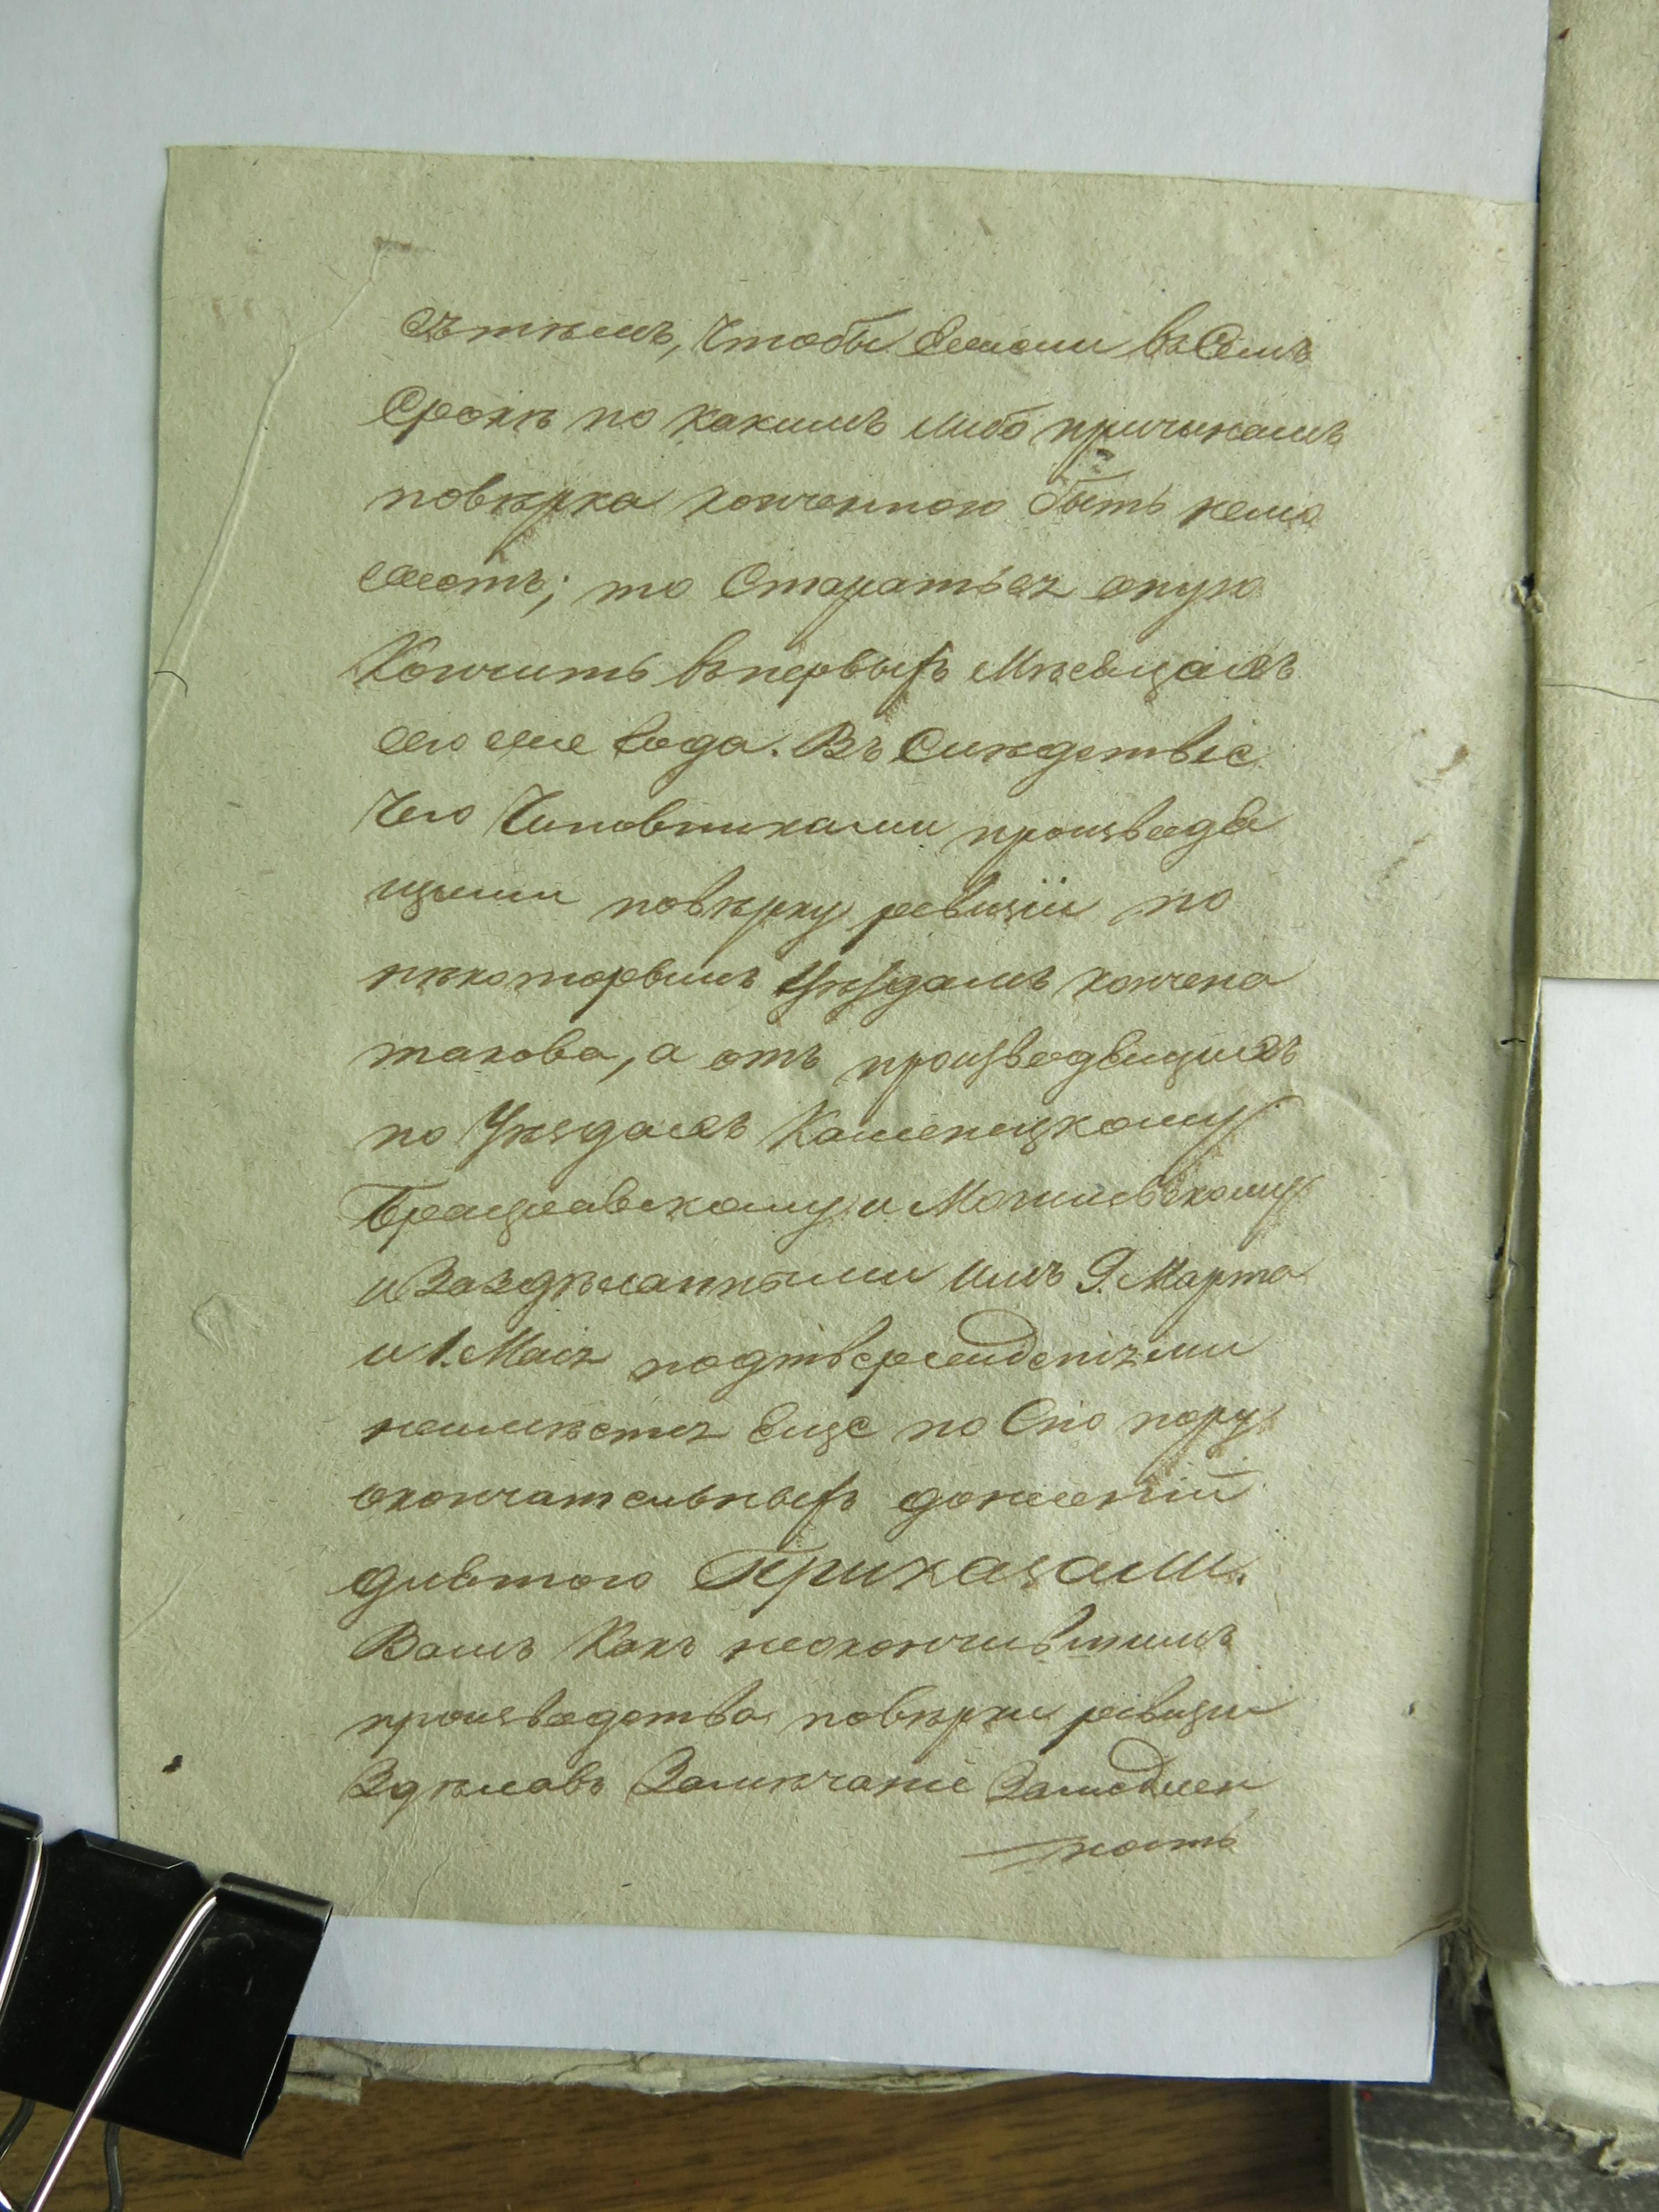 съ тѣмъ, чтобы Ежели въ Семъ
Срокѣ по какимъ либо причинамъ
повѣрка конченною быть немо
жетъ; то Старатьса оную
Кончить въ первыхъ Мѣсяцахъ
сего же года. Въ Слѣдствіе
чего Чиновниками производя
щими повѣрку ревизіи по
нѣкоторымъ Уѣздамъ кончена
такова, а отъ производящихъ
по Уѣздамъ Каменецкому
Брацлавскому и Могилевскому
и За здѣланными имъ 9. Марта
и 1. Маія подтвержденіями
неимѣетса Еще по Сію пору
окончательныхъ донесеній
длятого Приказали.
Вамъ Какъ неокончившимъ
производства повѣрки ревизіи
Здѣлавъ Замѣчаніе Замедлен
ность